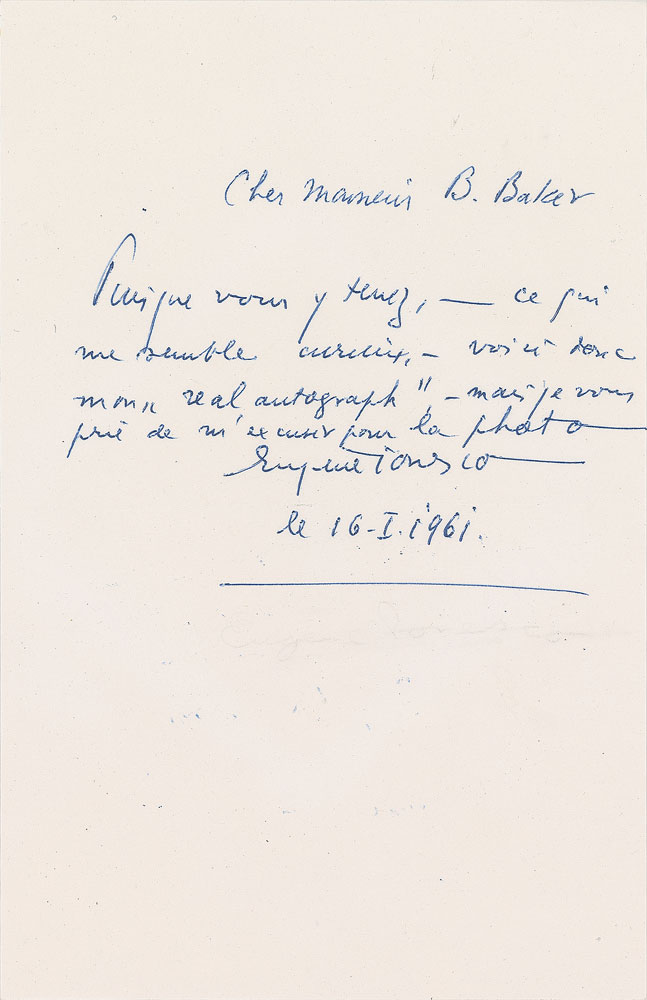 Cher Monsieur B. Baker
Puisque vous y tenez, — ce qui
me semble curieux, – voici donc
mon „real autograph" – mais je vous
prie de m'excuser pour la photo
Eugène Ionesco
le 16-I.1961.
Eugène Ionesco